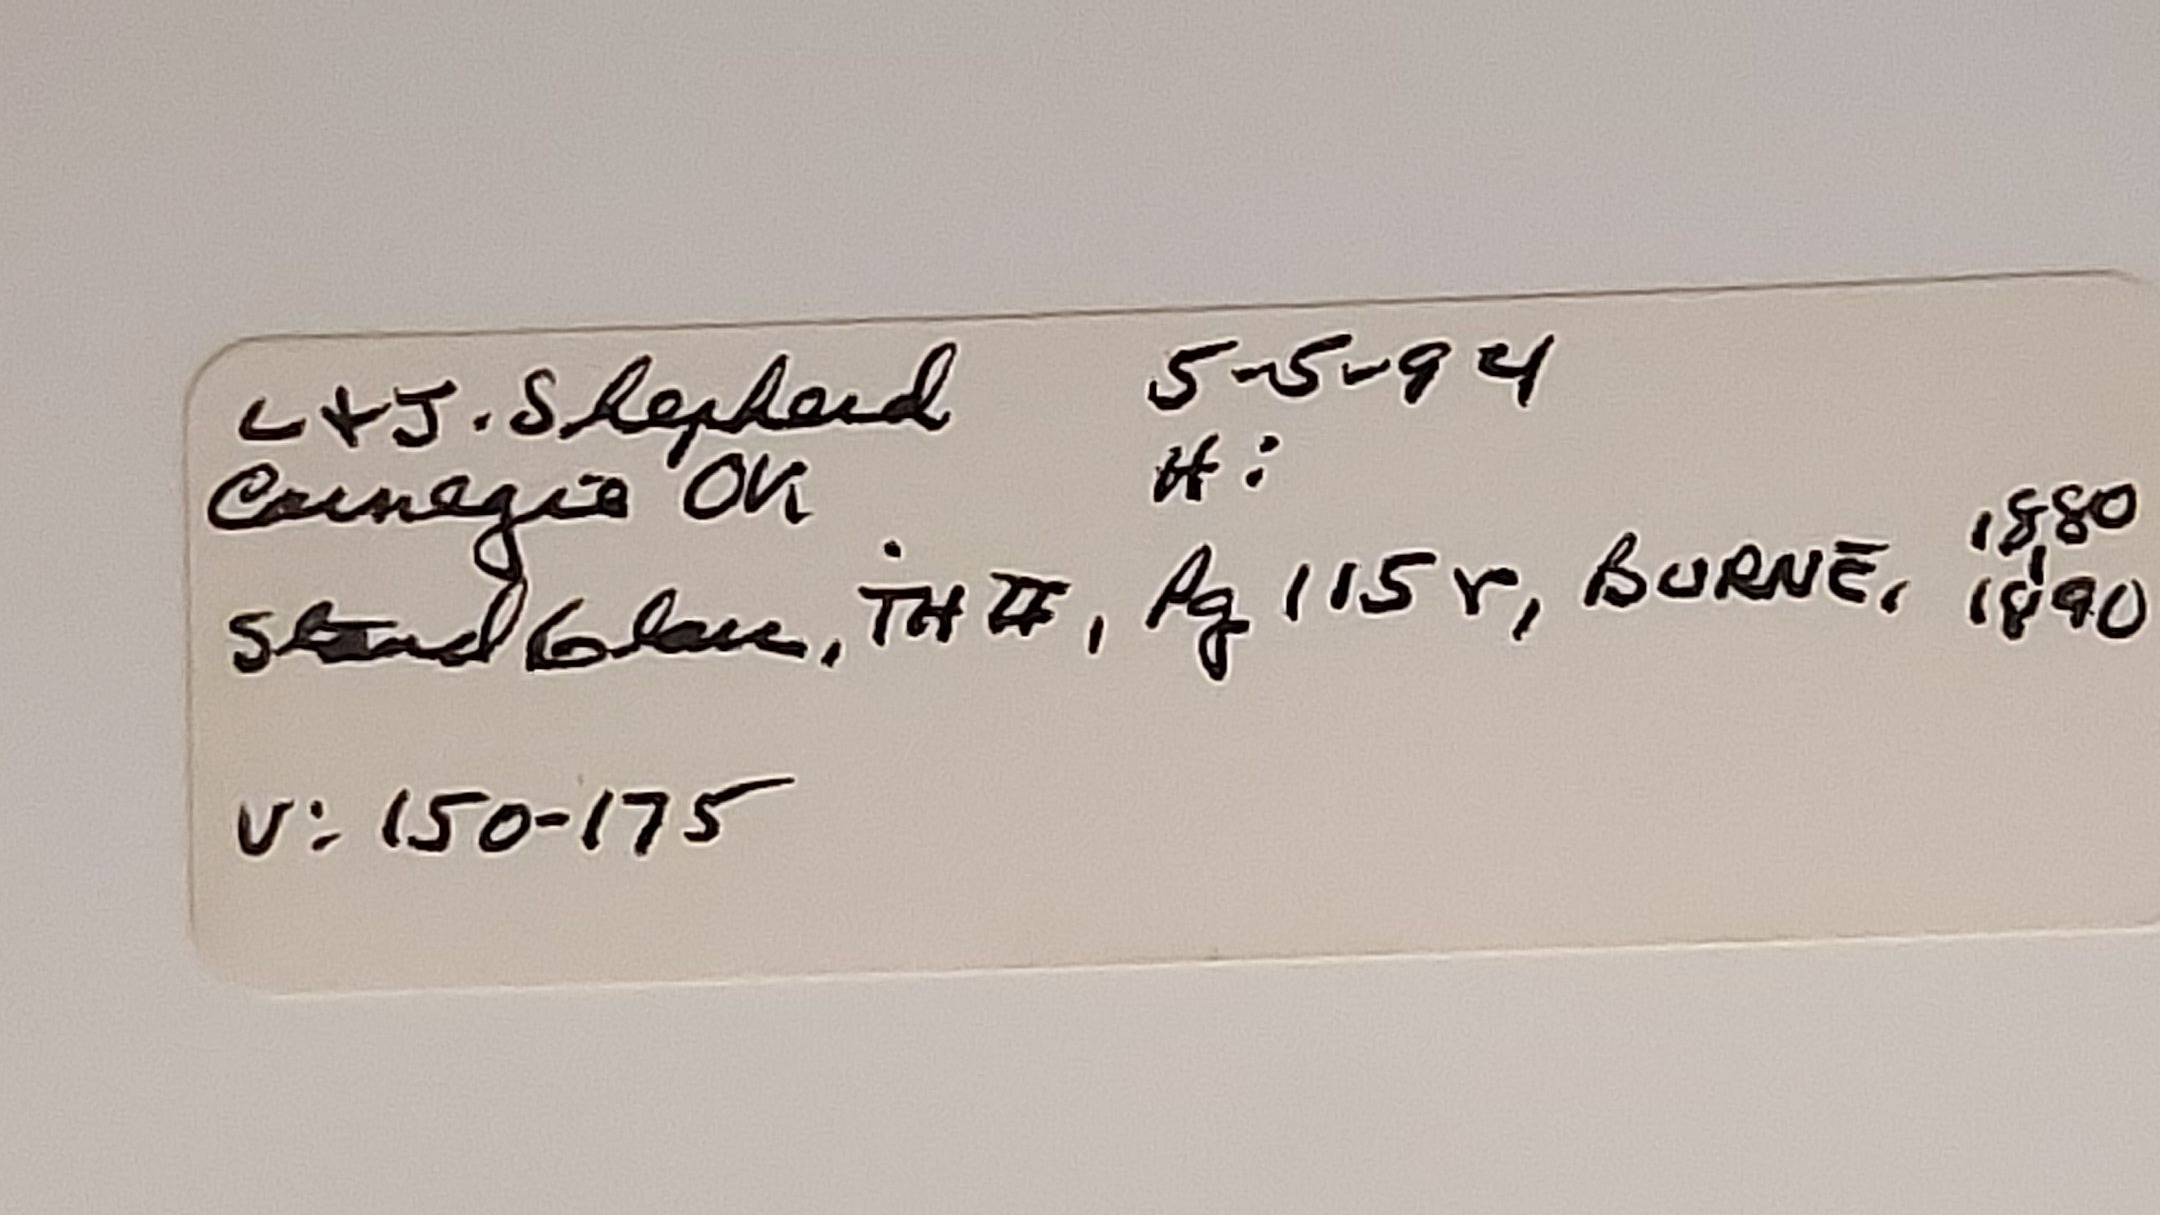 L & J. Shepherd 5-5-94
Carnegie OK #:
Stand Glass, TH II, Pg 115 r, BURNE, 1880-1890
V: 150-175